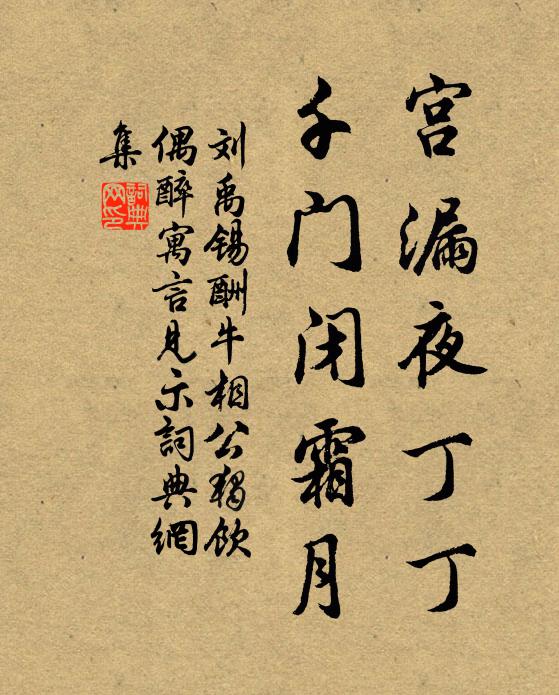 宫漏夜丁丁
千门闭霜月
刘禹锡酬牛相公独饮
偶醉寓言见示詞典網
集
詞典
网印